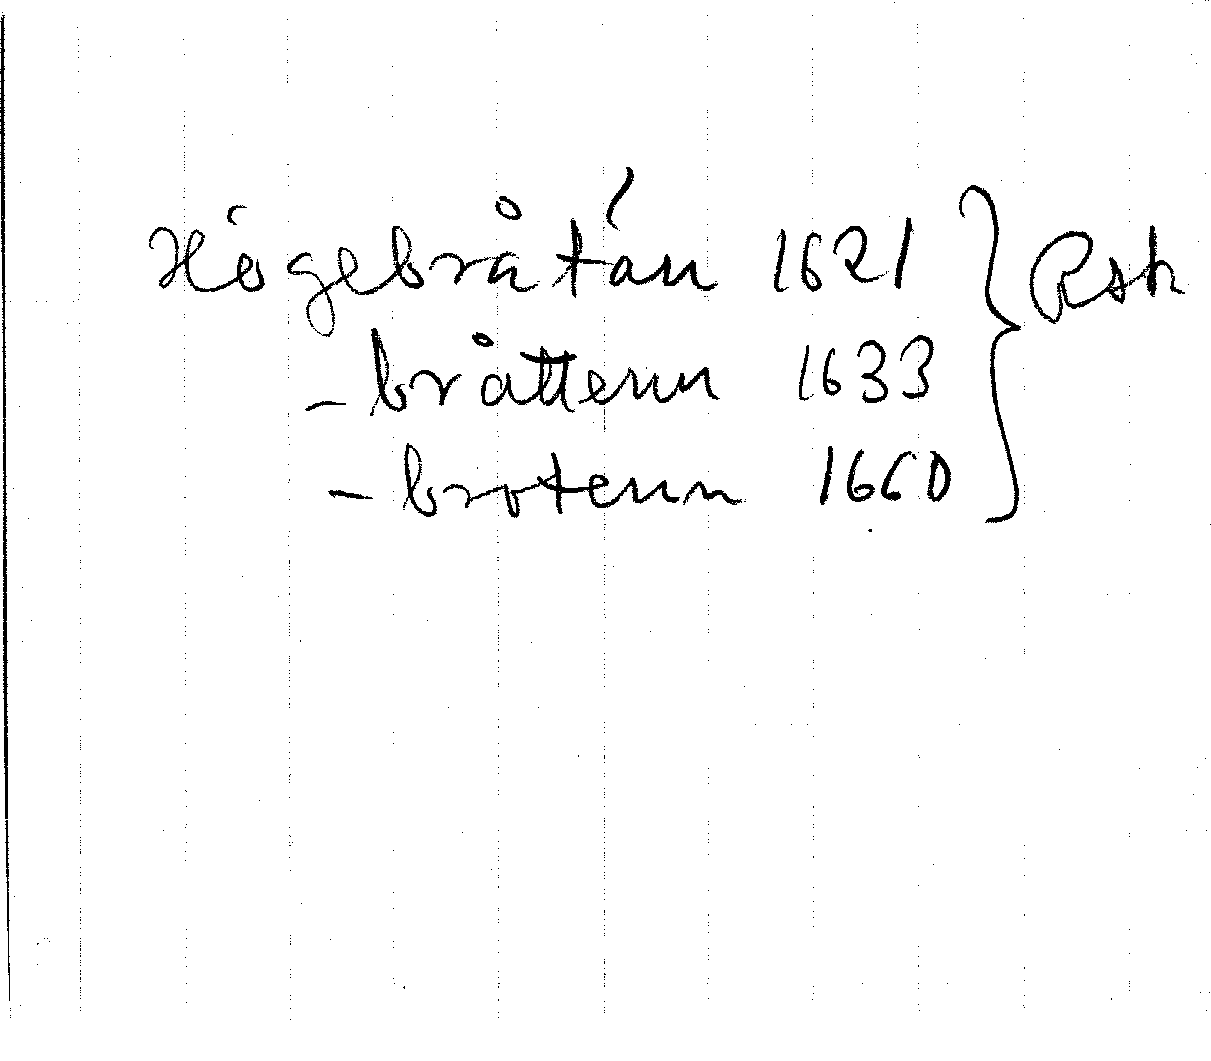 Högebråtån 1621 } Rsk
-bråttenn 1633
-brotenn 1660